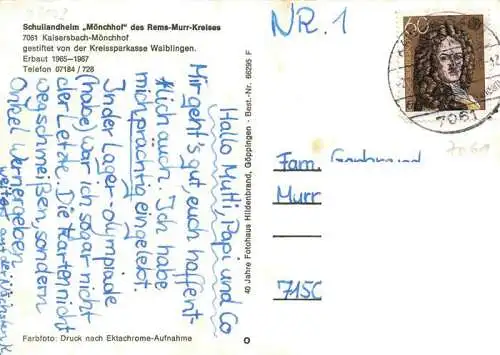 Schullandheim „Mönchhof" des Rems-Murr-Kreises
7061 Kaisersbach-Mönchhof
gestiftet von der Kreissparkasse Waiblingen.
Erbaut 1965—1967
Telefon 07184 / 728
NR. 1
60
7061
Hallo Mutti, Papi und Co
Mir geht's gut, euch haffent-
lich auch. Ich habe
mich prächtig eingelebt.
In der Lager-olympiade
(habe) war ich sogar nicht
der Letzte. Die Karten nicht
wegschmeißen, sondern
Onkel Werner geben.
weiter auf der nächsten K.
40 Jahre Fotohaus Hildenbrand, Göppingen · Best.-Nr. 66295 F
Fam.
Murr
715
Farbfoto: Druck nach Ektachrome-Aufnahme